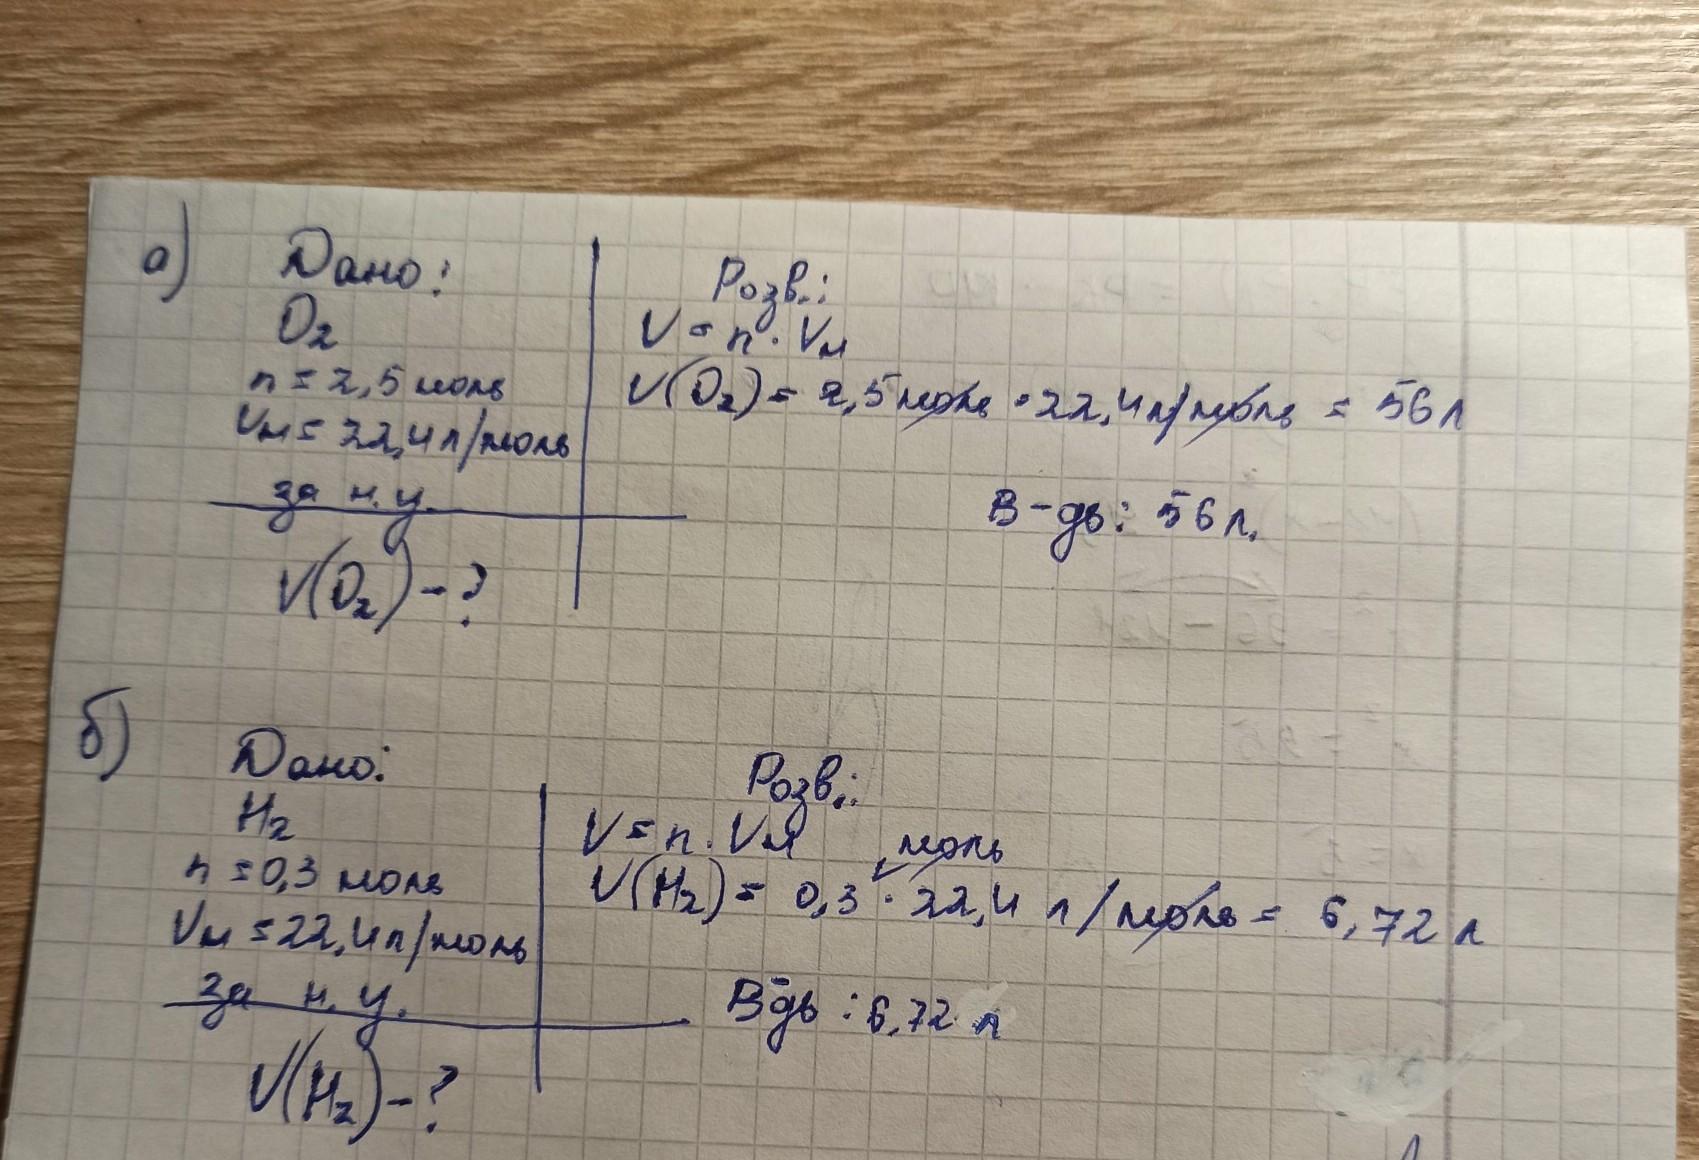 а) Дано:
O₂
n = 2,5 моль
Vм = 22,4 л/моль
за н. у.
V(O₂) - ?
Розв.:
V = n · Vм
V(O₂) = 2,5 моль · 22,4 л/моль = 56 л
В-дь: 56 л.
б) Дано:
H₂
n = 0,3 моль
Vм = 22,4 л/моль
за н. у.
V(H₂) - ?
Розв.:
V = n · Vм
моль
V(H₂) = 0,3 · 22,4 л/моль = 6,72 л
В-дь : 6,72 л